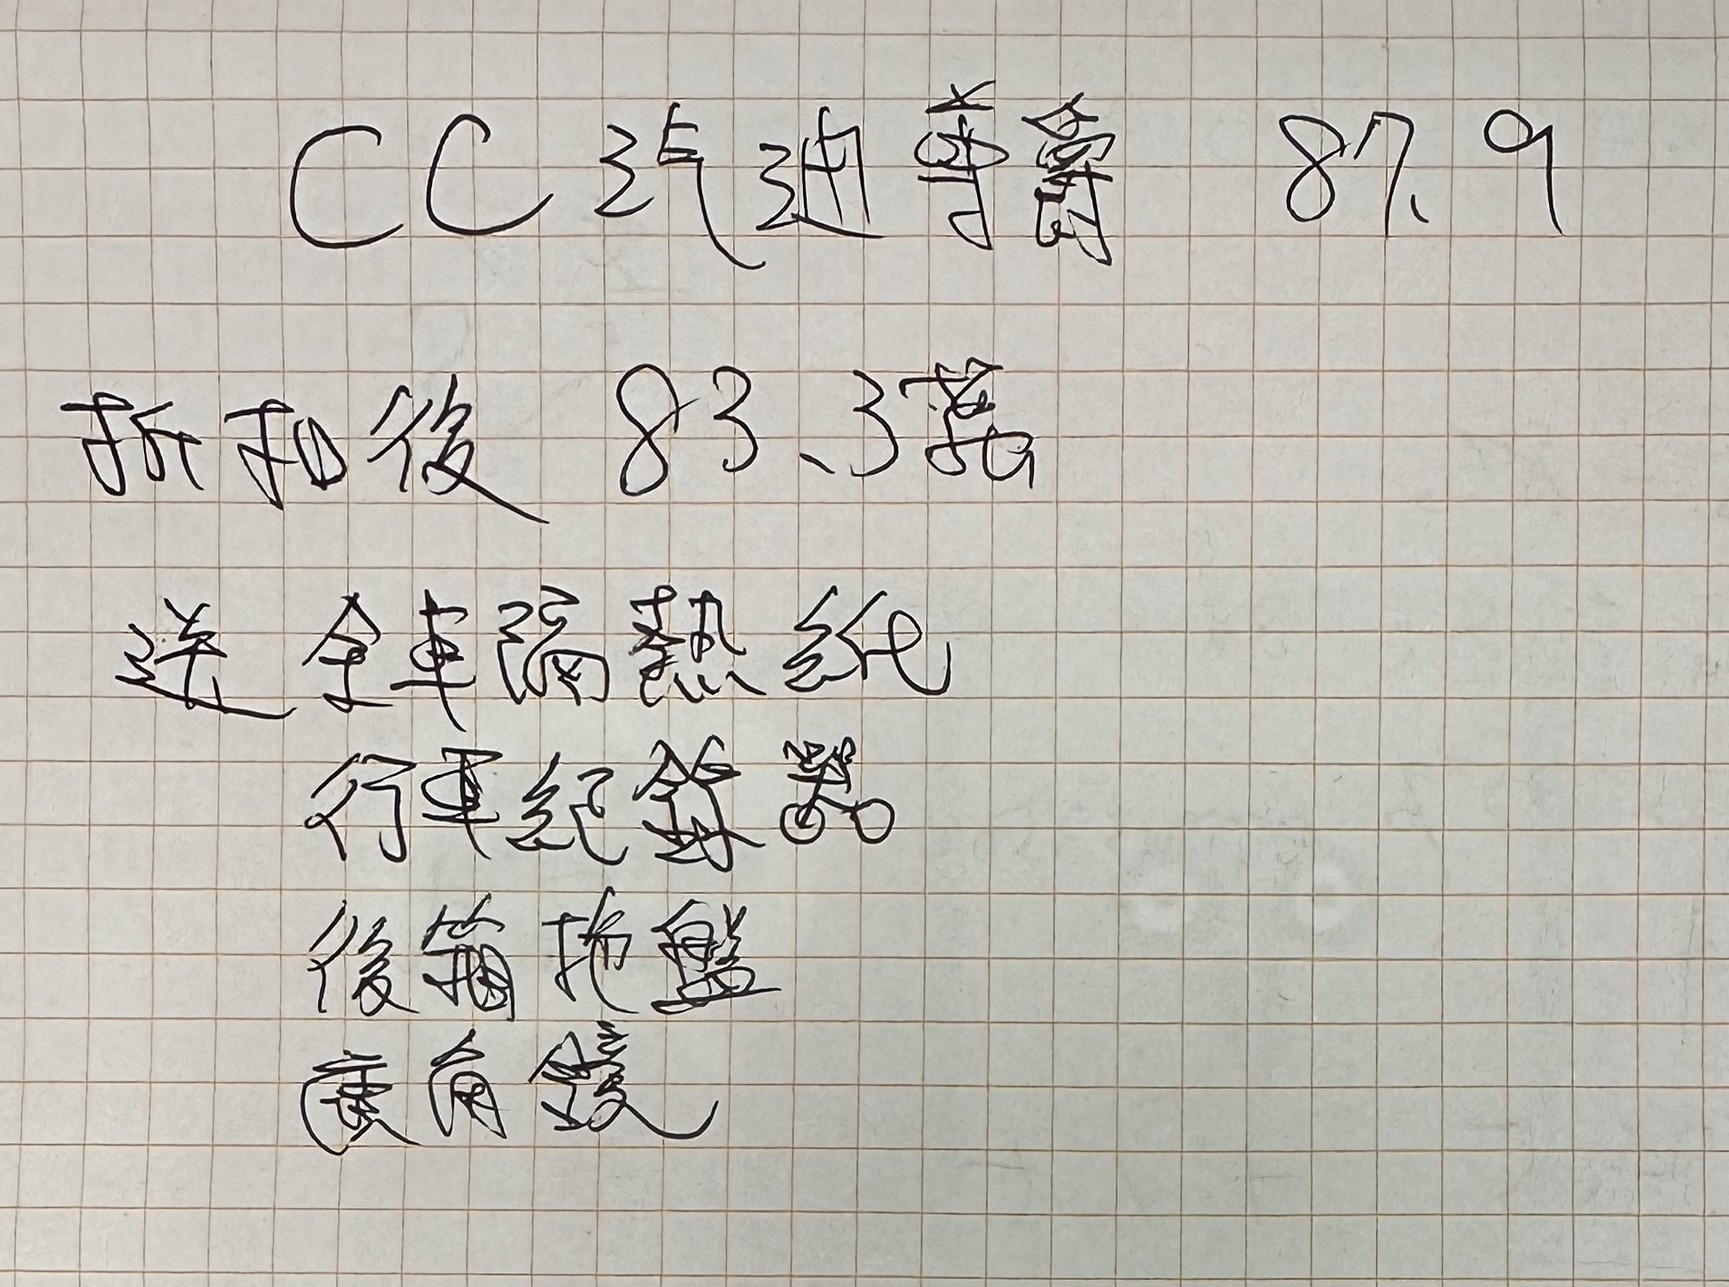 CC汽油尊爵 87.9
折扣後 83.3萬
送 全車隔熱紙
行車紀錄器
後箱托盤
廣角鏡